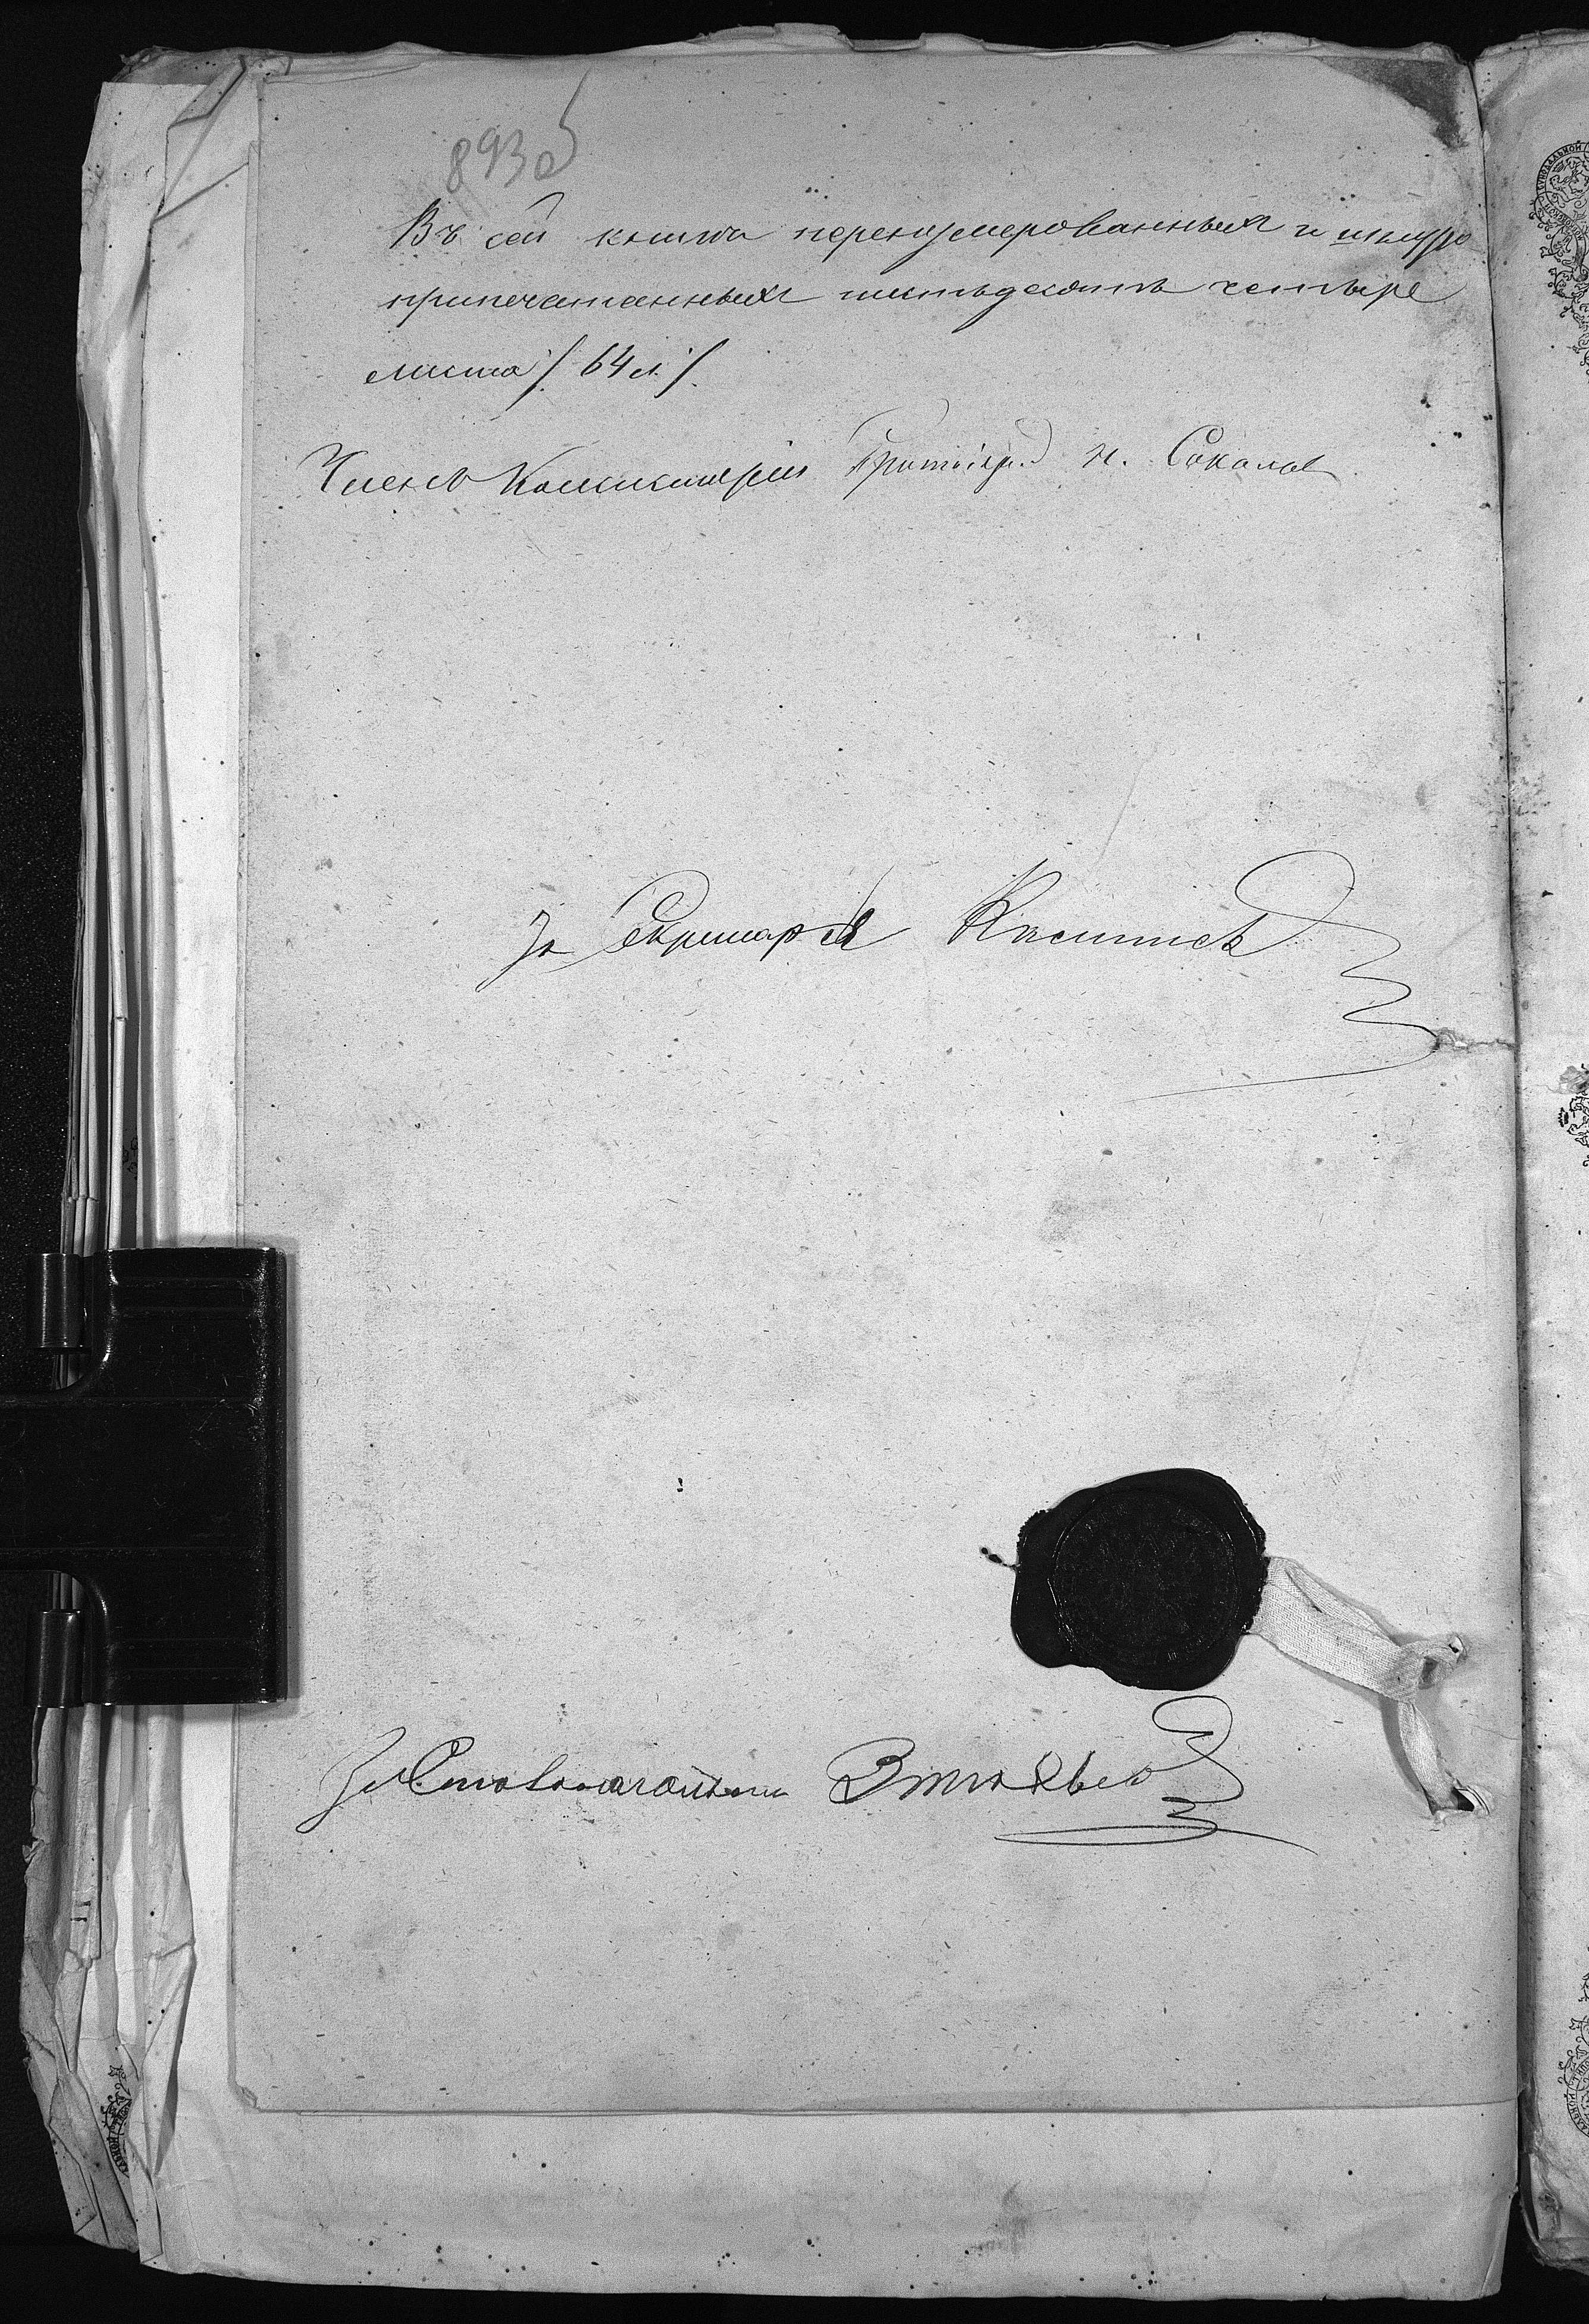 893 об
Въ сей книгѣ перенумерованныхъ и шнуро
припечатанныхъ шестьдесятъ четыре
листа /. 64 л. /.
Членъ Консисторіи Протоіерей Н. Соколовъ
За Секретаря
За Столоначальника